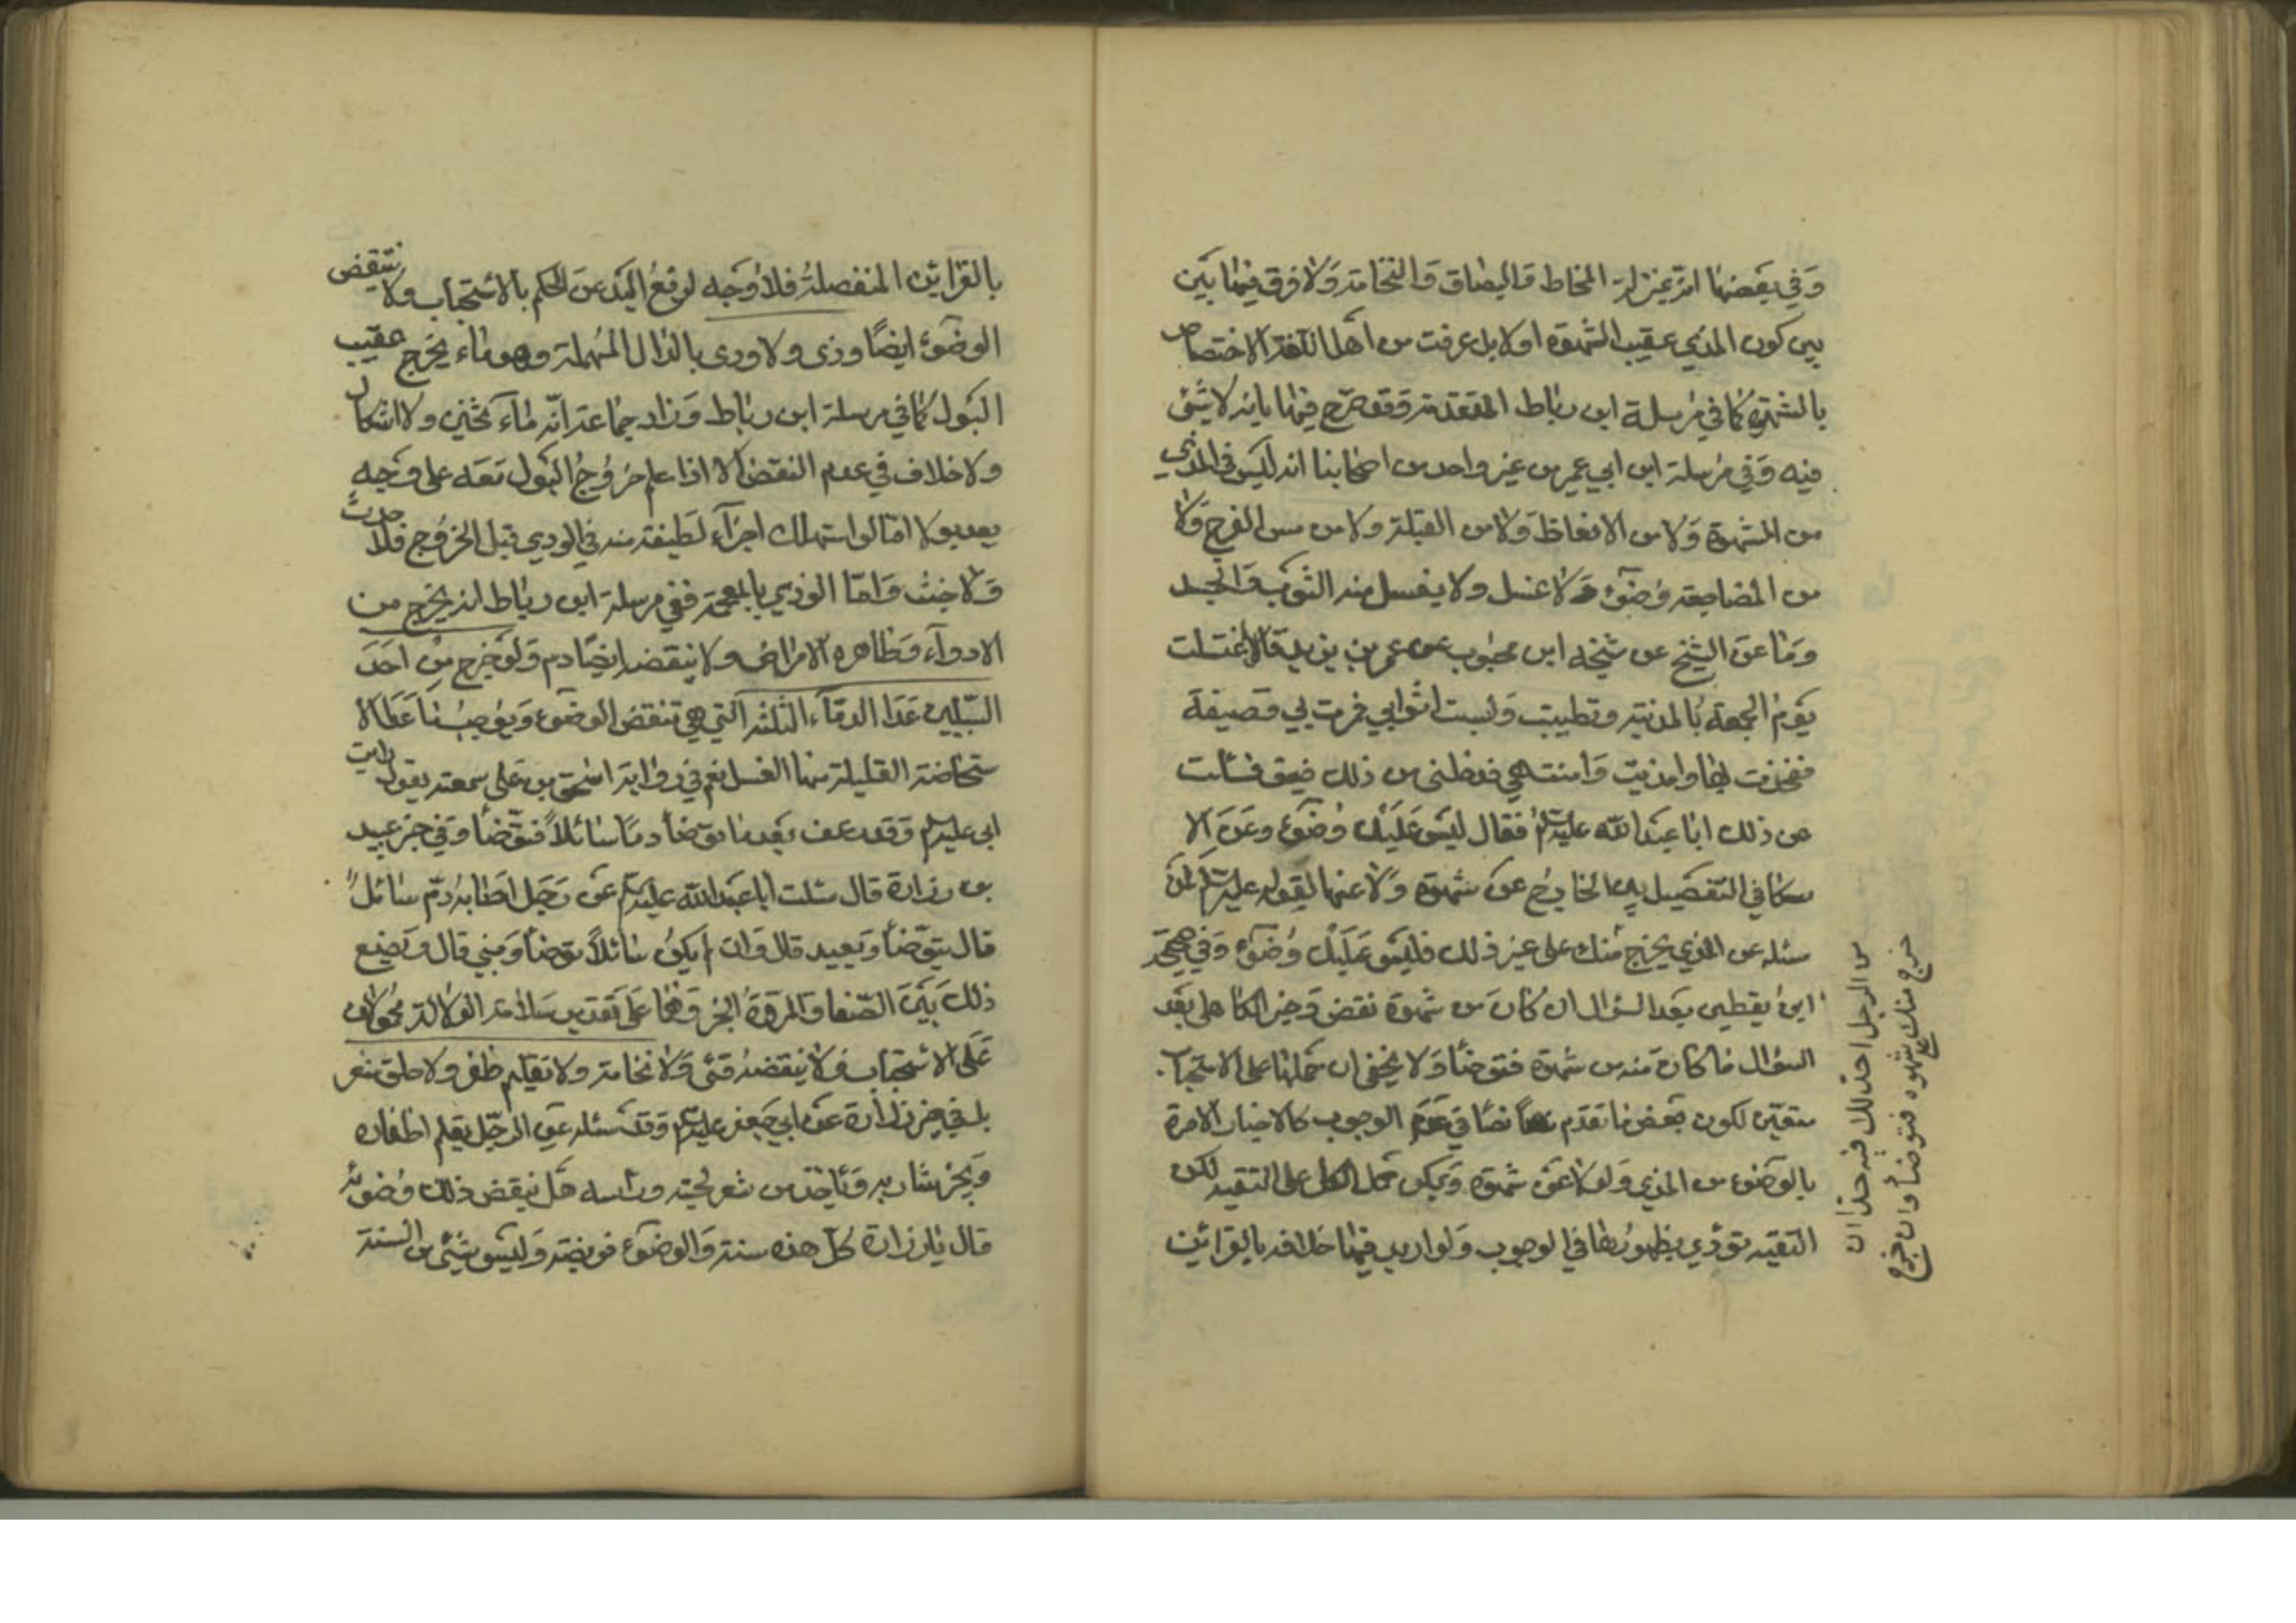 وَفي بَعضها انّه بمنزلة المخاط وَالبصاق وَالنخامة وَلا فرق فيما بَين
بين كون المذي عقيب الشهوة اولا بل عرفت من اهل اللغة الاختصاص
بالشهوة كما في مُرسلة ابن رباط المتقدمة وقد صرّح فيها بانه لا شئ
فيه وَفي مرسلة ابن ابي عمير عن غير واحد من اصحابنا انه ليس في المذي
من الشهوة وَلا من الانعاظ وَلا من القبلة ولا من مس الفرج وَلا
من المضاجعة وُضوء وَلا غسل ولا يغسل منه الثوب وَالجسد
وَما عن الشيخ عن شيخه ابن محبوب عن عمر بن يزيد قال اغتسلت
يَوم الجمعة بالمدينة وتطيبت وَلبست اثوابي فمرت بي وَصيفة
ففخذت لها وامذيت وَامنت هي فدخلني من ذلك ضيق فسألت
عن ذلك ابا عبد الله عليه السلم فقال ليس عَليك وُضوء وعن الا
سكافي التفصيل بين الخارج عن شهوة وَلا عنها لقوله عليه السلم لمن
سئله عن المذي يخرج منك على غير ذلك فليس عَليك وُضوء وَفي صحيحة
ابن يقطين بعد السؤال ان كان من شهوة نقض وَخبر الكاهلي بَعد
السؤال ما كان منه من شهوة فتوضأ وَلا يخفى ان حملها على الاستحباب
متعيّن لكون بعض ما تقدم نصا في عدم الوجوب كالاخبار الامرة
بالوَضوء من المذي وَلو لا عن شهوة وَيمكن حمل الكل على التقية لكن
التقيه تؤدي بظهورها في الوجوب وَلو اريد فيها خلافه بالقرائن
من الرجل احد لك فيه حدا ان
خرج منك على شهوه فتوضأ وان خرج
بالقرائن المنفصلة فلا وَجه لرفع اليد عن الحكم بالاستحباب ولا ينتقض
الوضوء ايضًا وذى ولا ودى بالدال المهملة وهو ماء يخرج عقيب
البَول كما في مرسلة ابن رباط وَزاد جماعة انّه ماء ثخين ولا اشكال
ولا خلاف في عدم النقض الا اذا علم خروج البَول معَه على وَجه
يعد بولا امّا لو استهلك اجزاء لطيفة منه في الودي قبل الخروج فلا حدث
وَلا خبث وَامّا الوذي بالمعجمة ففي مرسلة ابن رباط انه يخرج من
الادواء وَظاهره الامراض ولا ينقضه ايضًا دم وَلو خرج من احَد
السّبيلين عَدا الدماء الثلثة التي هي تنقض الوضوء وَيوجبُنا عَدا الا
ستحاضة القليلة منها الغسل نعم في رواية اسحق بن علي سمعته يقول رايت
ابي عليه السلم وَقد رعف بَعد ما توضأ دمًا سَائلاً فتوّضأ وَفي خبر عبيد
بن زرارة قال سئلت ابا عبد الله عليه السلم عن رَجل اصابه دم سائل
قال يتوّضأ وَيعيد قال وَان لم يكن سائلاً توضأ وَبنى قال وَيصنع
ذلك بَين الصّفا وَالمروَة الخبر وَهما على تقدير سَلامة الدلالة محمولان
عَلى الاستحباب فلا ينقضه قئ وَلا نخامة ولا تقليم ظفر ولا حلق شعر
بل في خبر زرارة عن ابي جعفر عليه السلم وَقد سئله عن الرّجل يقلم اظفاره
وَيجز شاربه وَيأخذ من شعر لحيته ورأسه هَل ينقض ذلك وُضوئه
قال يا زرارة كلّ هذه سنة وَالوضوء فريضة وَليس شئ من السنة